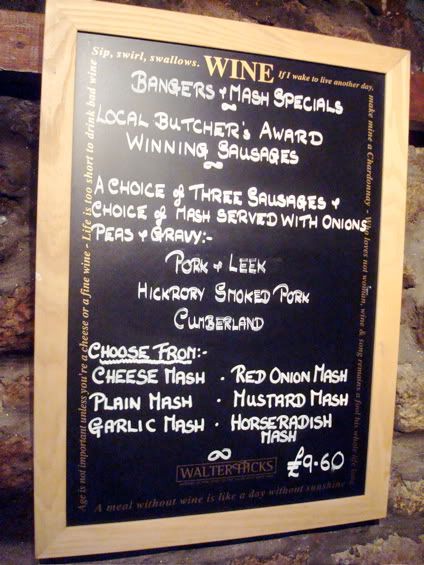 Sip, swirl, swallows. WINE If I wake to live another day,
make mine a Chardonnay - Who loves not woman, wine & song remains a fool his whole life long
A meal without wine is like a day without sunshine
Age is not important unless you're a cheese or a fine wine - Life is too short to drink bad wine
BANGERS & MASH SPECIALS
LOCAL BUTCHER'S AWARD
WINNING SAUSAGES
A CHOICE of THREE SAUSAGES &
CHOICE of MASH SERVED WITH ONIONS
PEAS & GRAVY:-
PORK & LEEK
HICKRORY SMOKED PORK
CUMBERLAND
CHOOSE FROM:-
CHEESE MASH · RED ONION MASH
PLAIN MASH · MUSTARD MASH
GARLIC MASH · HORSERADISH
MASH
WALTER HICKS
£9.60